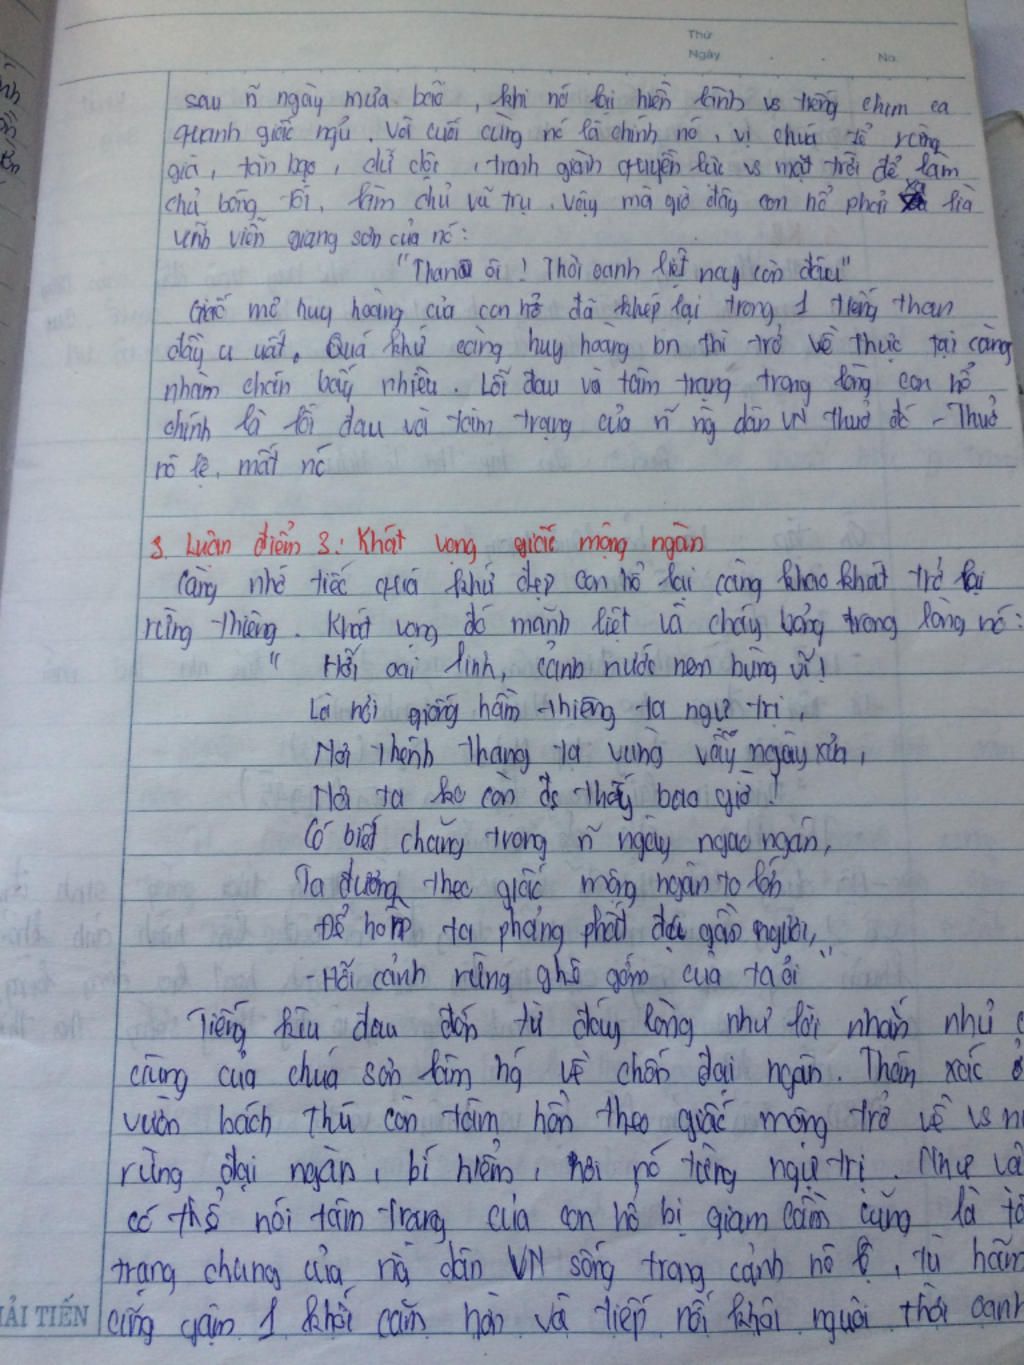 Thứ
Ngày No.
sau ~ ngày mưa bão, khi nó lại hiền lành vs tiếng chim ca
quanh giấc ngủ. Và cuối cùng nó là chính nó, vị chúa tể rừng
già, tàn bạo, dữ dội, tranh giành quyền lực vs mặt trời để làm
chủ bóng tối, làm chủ vũ trụ. Vậy mà giờ đây con hổ phải xa lìa
vĩnh viễn giang sơn của nó:
"Than ôi! Thời oanh liệt nay còn đâu"
Giấc mơ huy hoàng của con hổ đã khép lại trong 1 tiếng than
đầy u uất. Quá khứ càng huy hoàng bn thì trở về thực tại càng
nhàm chán bấy nhiêu. Lỗi đau và tâm trạng trong lòng con hổ
chính là lỗi đau và tâm trạng của ~ ng dân VN thuở đó - Thuở
nô lệ, mất nc
3. Luận điểm 3: Khát vọng giấc mộng ngàn
Càng nhớ tiếc quá khứ đẹp con hổ lại càng khao khát trở lại
rừng thiêng. Khát vọng đó mãnh liệt và cháy bỏng trong lòng nó:
" Hỡi oai linh, cảnh nước non hùng vĩ!
Là nơi giống hầm thiêng ta ngự trị,
Nơi thênh thang ta vùng vẫy ngày xưa,
Nơi ta ko còn đc thấy bao giờ!
Có biết chăng trong ~ ngày ngao ngán,
Ta đương theo giấc mộng ngàn to lớn
Để hồn ta phảng phất đc gần ngươi,
- Hỡi cảnh rừng ghê gớm của ta ơi "
Tiếng kêu đau đớn từ đáy lòng như lời nhắn nhủ
cùng của chúa sơn lâm ng về chốn đại ngàn. Thân xác ở
vườn bách thú còn tâm hồn theo giấc mộng trở về vs
rừng đại ngàn, bí hiểm, nơi nó từng ngự trị. Như
có thể nói tâm trạng của con hổ bị giam cầm cũng là
trạng chung của ng dân VN sống trong cảnh nô lệ, tù hãm
cũng gậm 1 khối căm hờn và tiếp nối khôi nguôi thời oanh
ẢI TIẾN